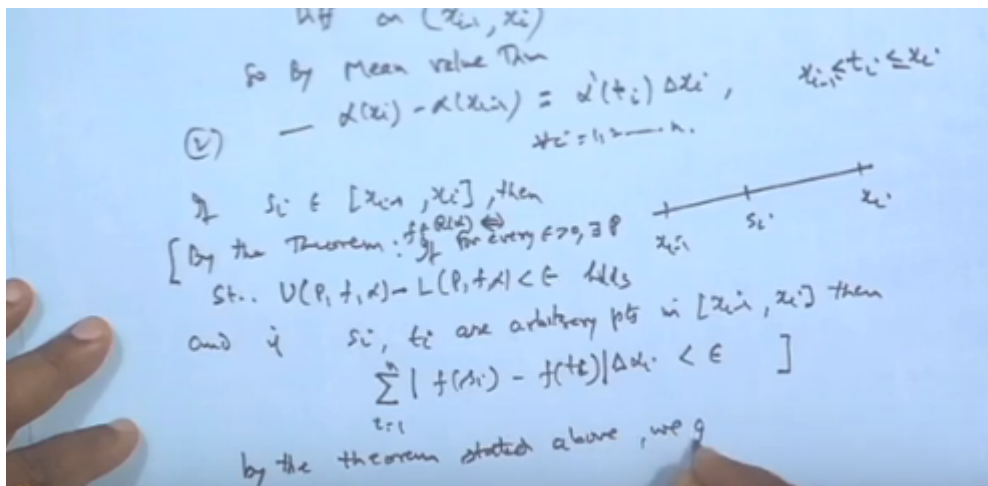 Diff on (x_{i-1}, x_i)
So By Mean value Thm
② — α(x_i) - α(x_{i-1}) = α'(t_i) Δx_i , x_{i-1} ≤ t_i ≤ x_i
∀ i = 1, 2 ---- n.
If s_i ∈ [x_{i-1}, x_i], then
x_{i-1} s_i x_i
[By the Theorem : f ∈ R(α) ⇔ If for every ε > 0, ∃ P
St.. U(P, f, α) - L(P, f, α) < ε holds
and if s_i, t_i are arbitrary pts in [x_{i-1}, x_i] then
\sum_{i=1}^{n} | f(s_i) - f(t_i) | Δα_i < ε ]
by the theorem stated above, we g